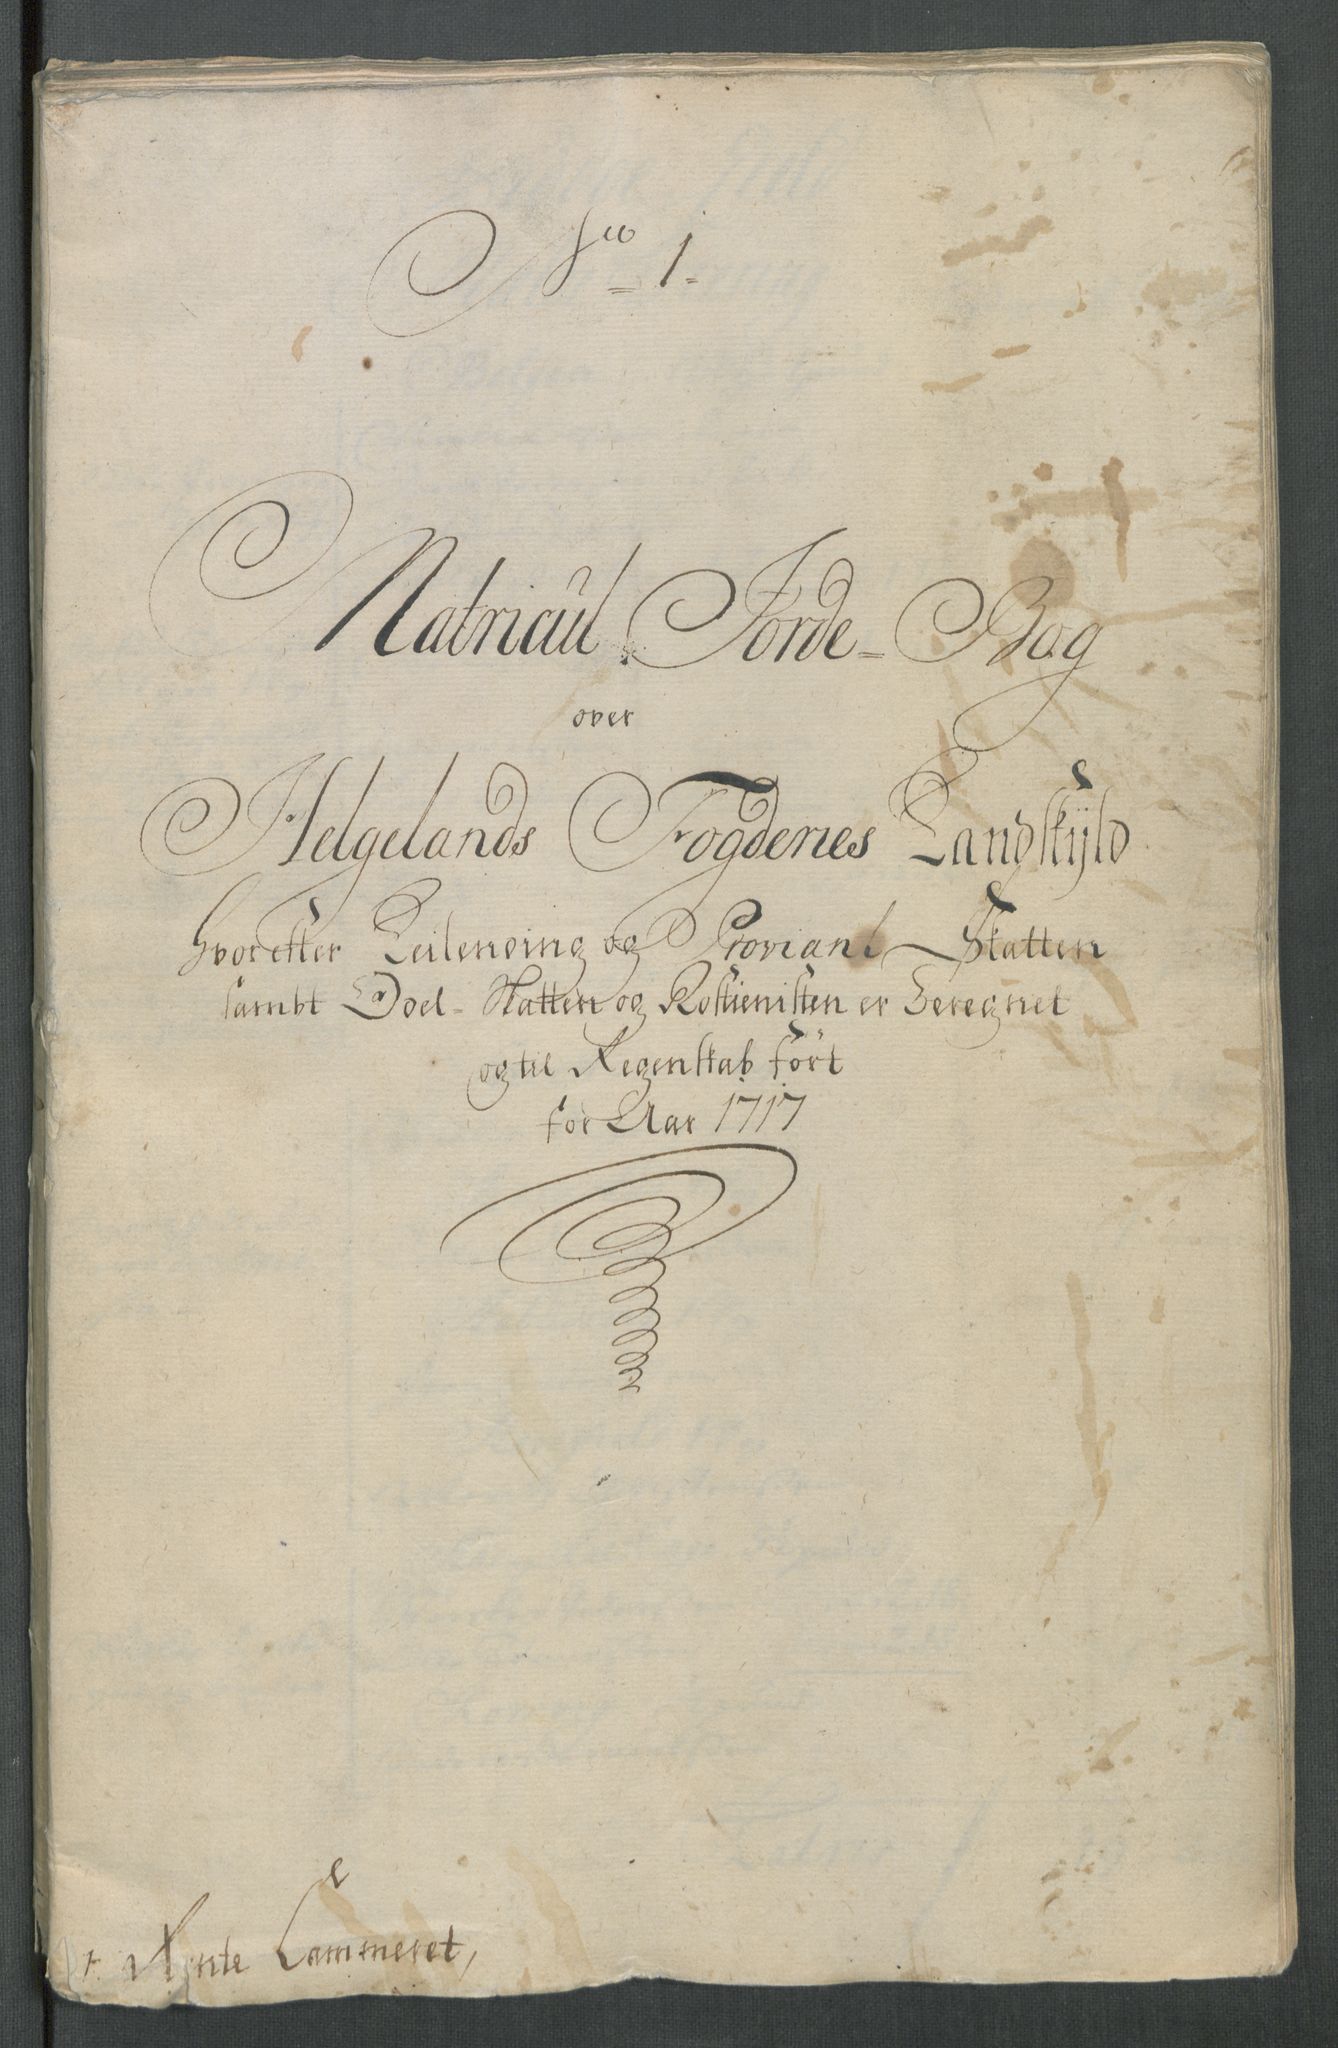 No 1.
Matricul Jorde-Bog
over
Helgelands Fogderies Landskÿld
hvorefter Leilending og Proviant Skatten
sambt Odel-Skatten og Rostienisten er beregnet
og til Regenskab fört
for Aar 1717
Rente Cammeret,